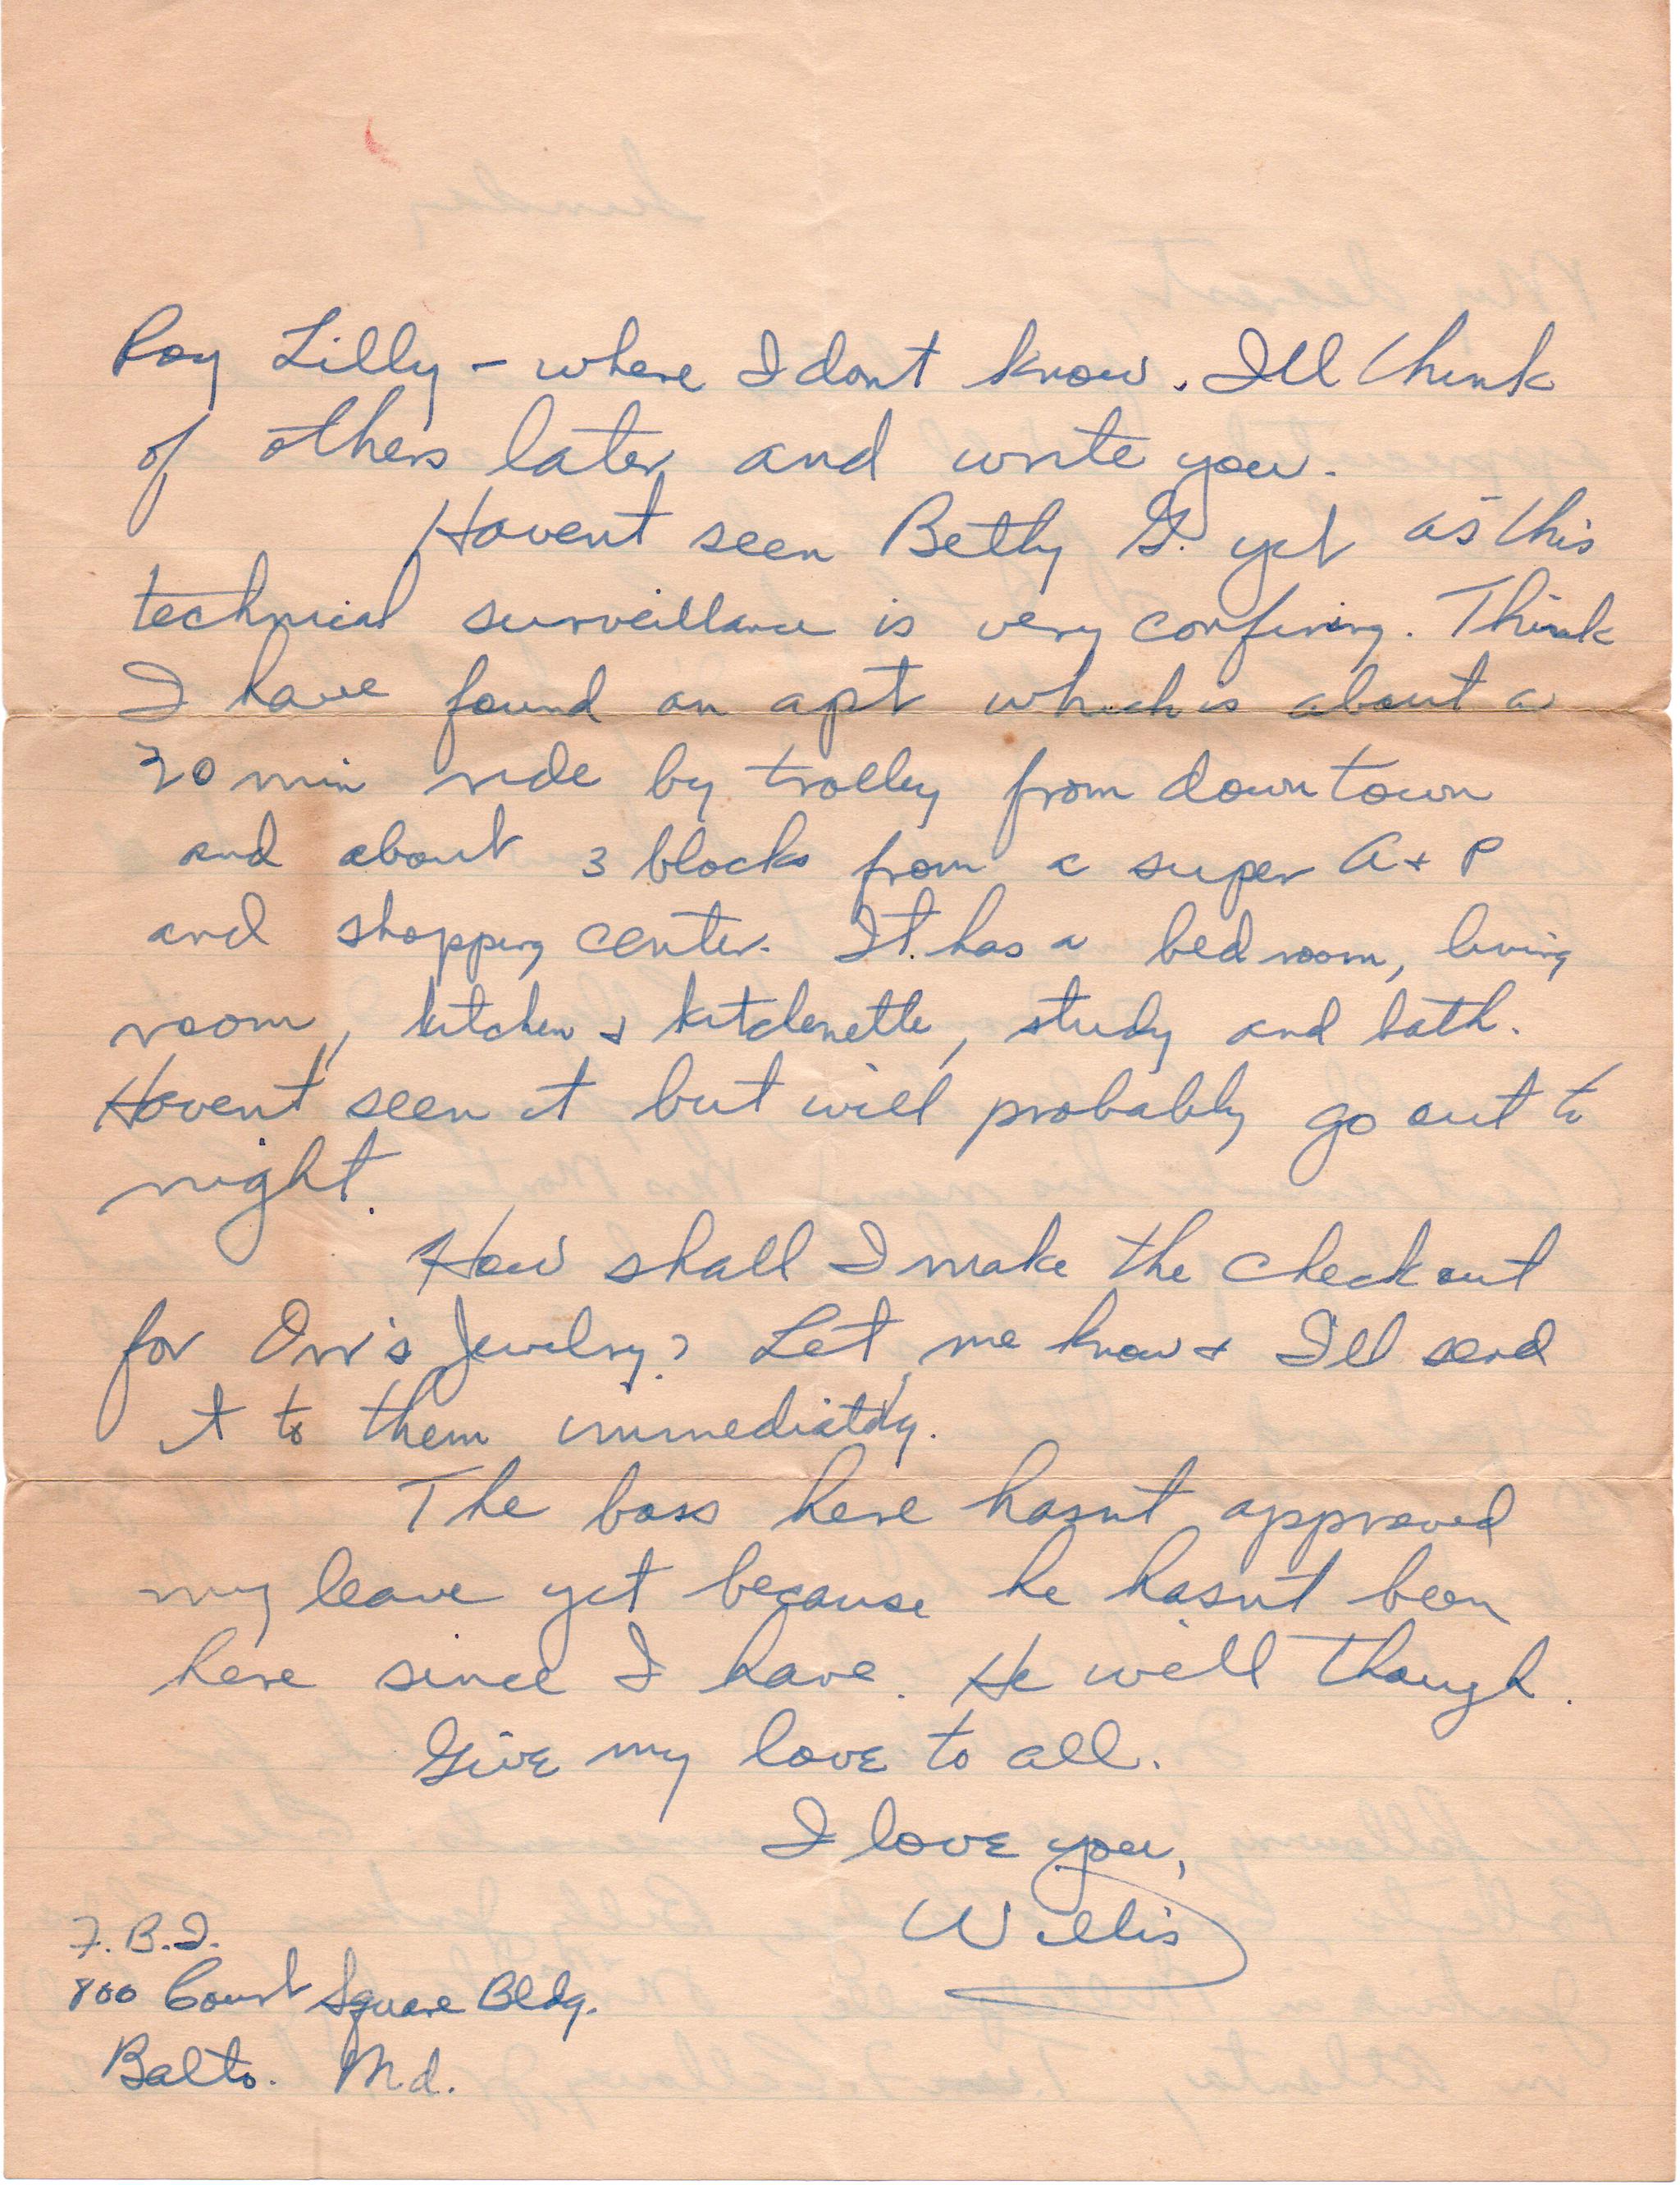 Roy Lilly – where I dont know. Ill think
of others later and write you.
Havent seen Betty G. yet as this
technical surveillance is very confining. Think
I have found an apt which is about a
20 min ride by trolley from downtown
and about 3 blocks from a super A + P
and shopping center. It has a bed room, living
room, kitchen + kitchenette, study and bath.
Havent seen it but will probably go out to
night.
How shall I make the check out
for Orr's Jewelry? Let me know + I'll send
it to them immediately.
The boss here hasnt approved
my leave yet because he hasnt been
here since I have. He will though.
Give my love to all.
I love you,
Willis
F.B.I.
800 Court Square Bldg.
Balto. Md.